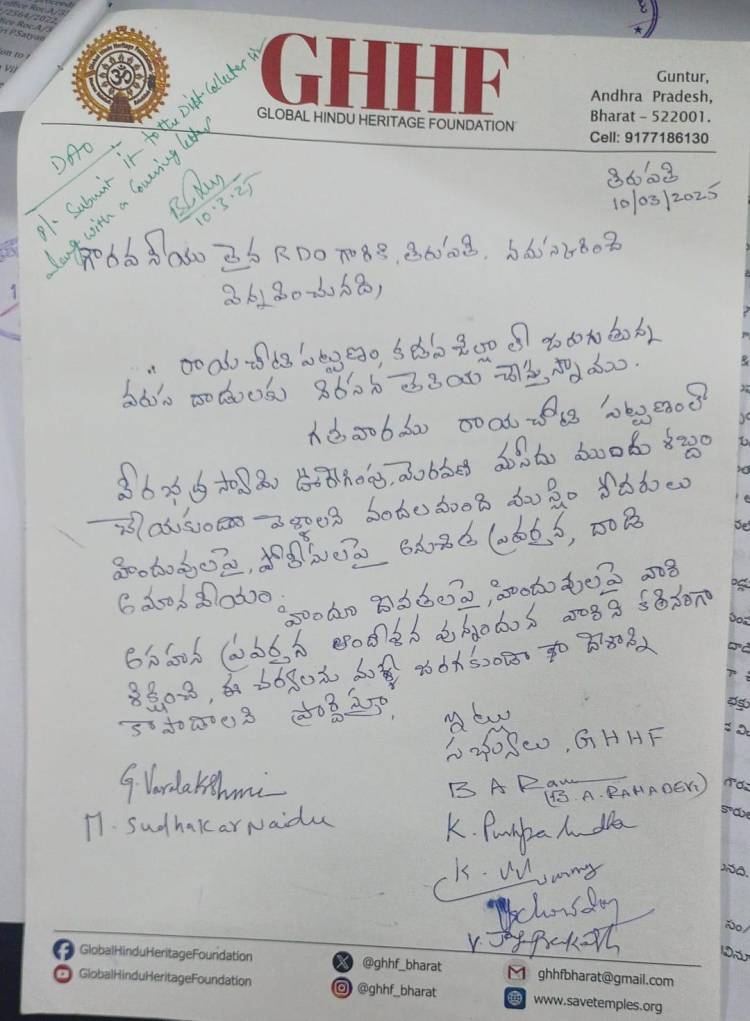 GHHF
GLOBAL HINDU HERITAGE FOUNDATION
Guntur,
Andhra Pradesh,
Bharat – 522001.
Cell: 9177186130
DAO
Pl. Submit it to the Dist Collector
along with a Covering letter
10.3.25
తిరుపతి
10/03/2025
గౌరవనీయులైన RDO గారికి, తిరుపతి. నమస్కరించి
విన్నవించునది,
రాయచోటి పట్టణం, కడప జిల్లా లో జరుగుతున్న
వరుస దాడులకు నిరసన తెలియ చేస్తున్నాము.
గతవారము రాయచోటి పట్టణంలో
వీరభద్రస్వామి ఊరేగింపు, మెరవణి మసీదు ముందు శబ్దం
చేయకుండా వెళ్ళాలని వందలమంది ముస్లిం సోదరులు
హిందువులపై, పోలీసులపై అనుచిత ప్రవర్తన, దాడి
అమానవీయం.
హిందూ దేవతలపై, హిందువులపై వారి
అసహన ప్రవర్తన ఆందోళన వున్నందున వారిని కఠినంగా
శిక్షించి, ఈ చర్యలను మళ్ళీ జరగకుండా మా దేశాన్ని
కాపాడాలని ప్రార్థిస్తూ,
ఇట్లు
సభ్యులు, GHHF
G. Varalakshmi
M. Sudhakar Naidu
B A Rama
(B. A. RAMADEVI)
K. Pushpa
GlobalHinduHeritageFoundation
GlobalHinduHeritageFoundation
@ghhf_bharat
@ghhf_bharat
ghhfbharat@gmail.com
www.savetemples.org